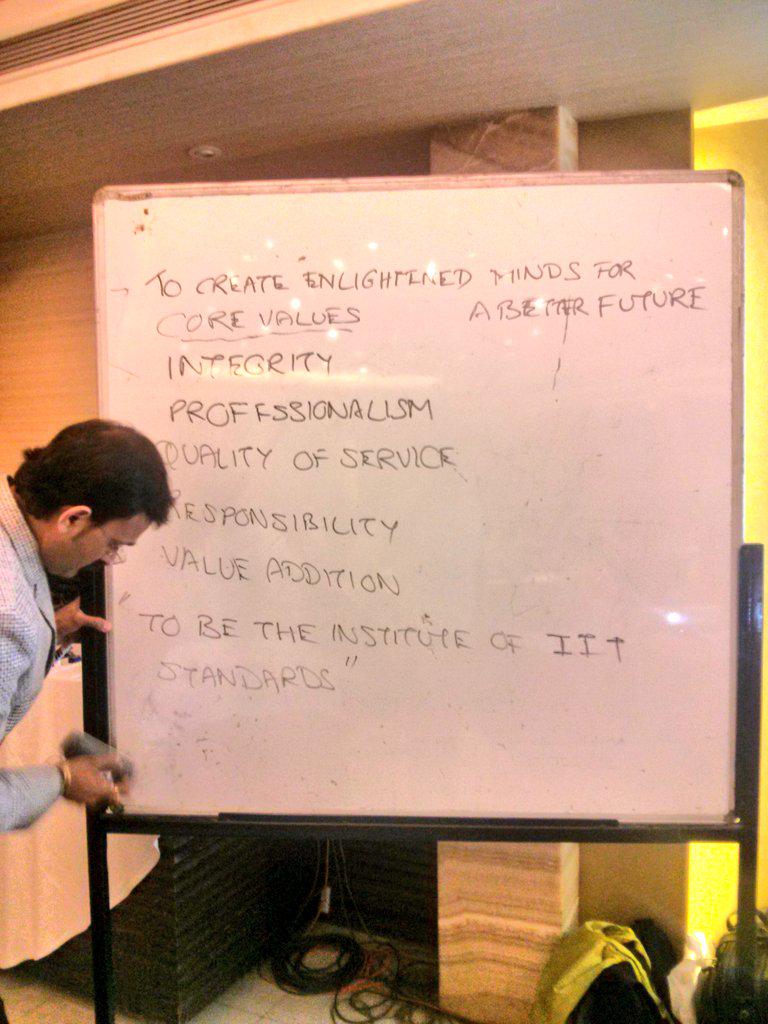 TO CREATE ENLIGHTENED MINDS FOR
A BETTER FUTURE
CORE VALUES
INTEGRITY
PROFESSIONALISM
QUALITY OF SERVICE
RESPONSIBILITY
VALUE ADDITION
"TO BE THE INSTITUTE OF IIT
STANDARDS"